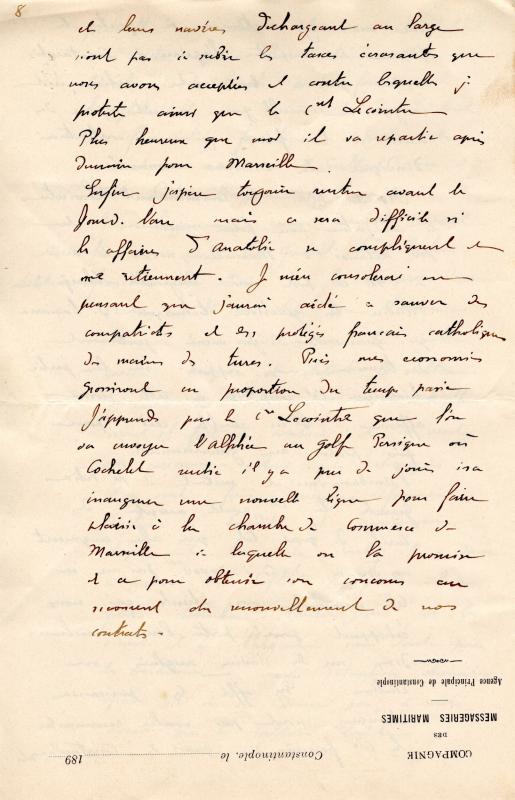 8
et leurs navires déchargeant au large
n'ont pas à subir les taxes écrasantes que
nous avons acceptées et contre lesquelles j
proteste ainsi que le Cnt Lecointre
Plus heureux que moi il va repartir après
demain pour Marseille.
Enfin j'espère toujours rentrer avant le
Jour d. l'an mais ce sera difficile si
les affaires d'Anatolie se compliquent et
me retiennent. Je m'en consolerai en
pensant que j'aurai aidé à sauver des
compatriotes et des protégés français catholiques
des mains des turcs. Puis mes économies
grossiront en proportion du temps passé
J'apprends par le Ct Lecointre que l'on
va envoyer l'alphée au Golf Persique où
Cochelet rentré il y a peu de jours ira
inaugurer une nouvelle ligne pour faire
plaisir à la chambre de Commerce de
Marseille à laquelle on l'a promise
et ce pour obtenir son concours au
moment du renouvellement de nos
contrats.
Agence Principale de Constantinople
MESSAGERIES MARITIMES
DES
COMPAGNIE
Constantinople, le 189